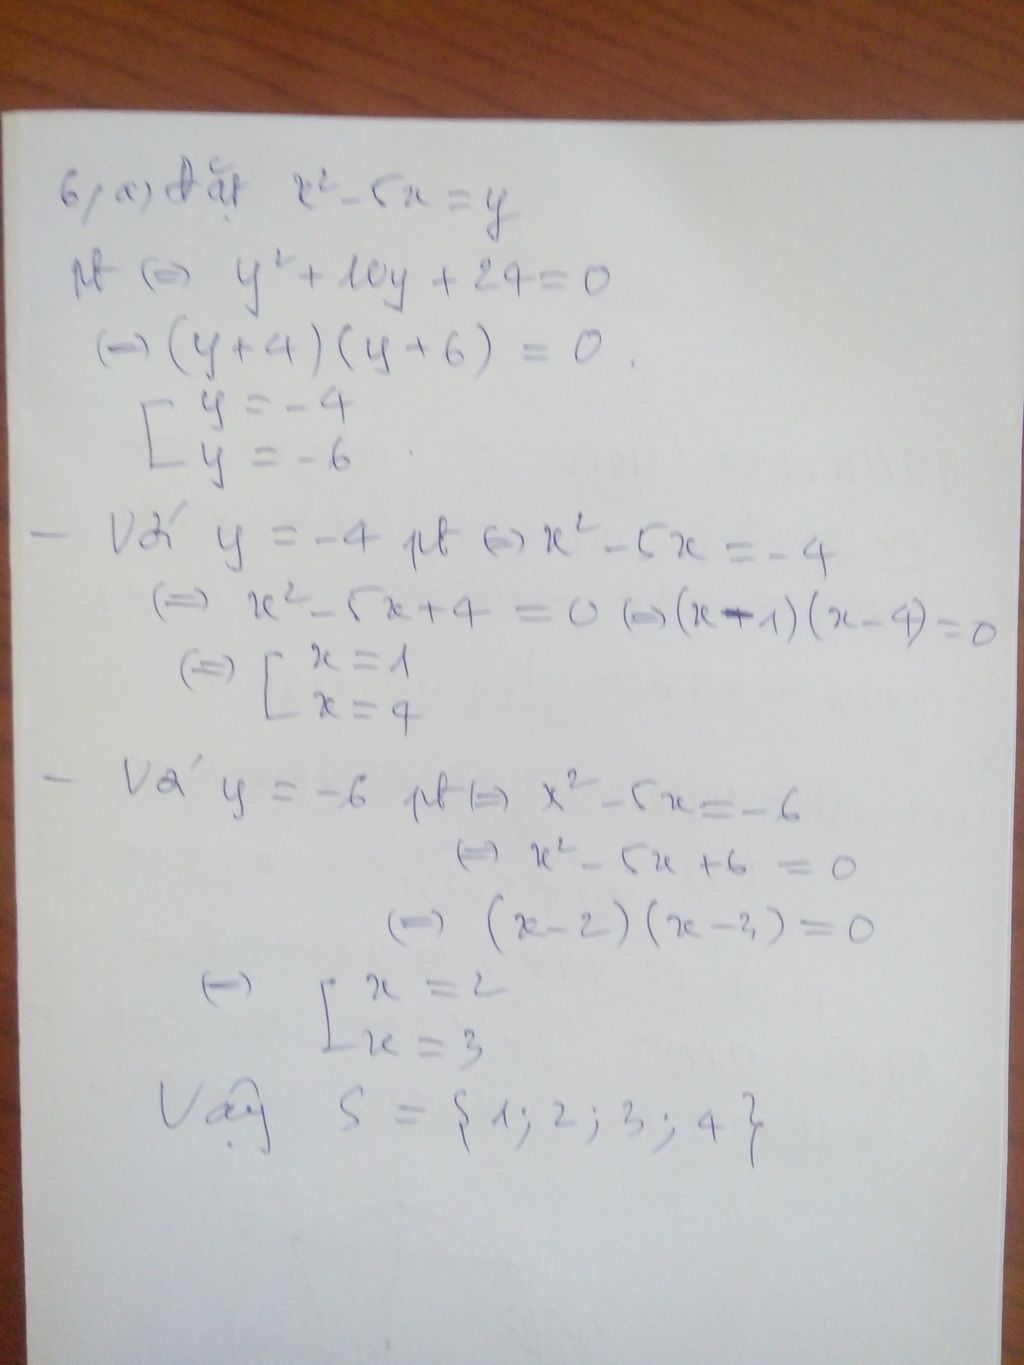 6, a) Đặt x² - 5x = y
pt (=) y² + 10y + 24 = 0
(=) (y + 4) (y + 6) = 0.
[ y = -4
y = -6
- Với y = -4 pt (=) x² - 5x = -4
(=) x² - 5x + 4 = 0 (=) (x - 1) (x - 4) = 0
(=) [ x = 1
x = 4
- Với y = -6 pt (=) x² - 5x = -6
(=) x² - 5x + 6 = 0
(=) (x - 2) (x - 3) = 0
(=) [ x = 2
x = 3
Vậy S = {1; 2; 3; 4}